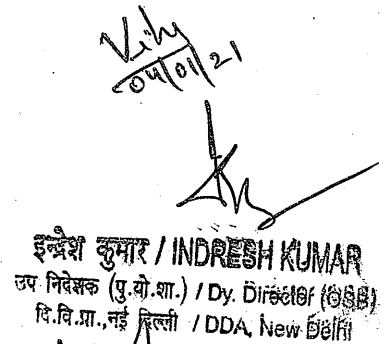 04/01/21
इन्द्रेश कुमार / INDRESH KUMAR
उप निदेशक (पु.यो.शा.) / Dy. Director (OSB)
दि.वि.प्रा.,नई दिल्ली / DDA, New Delhi